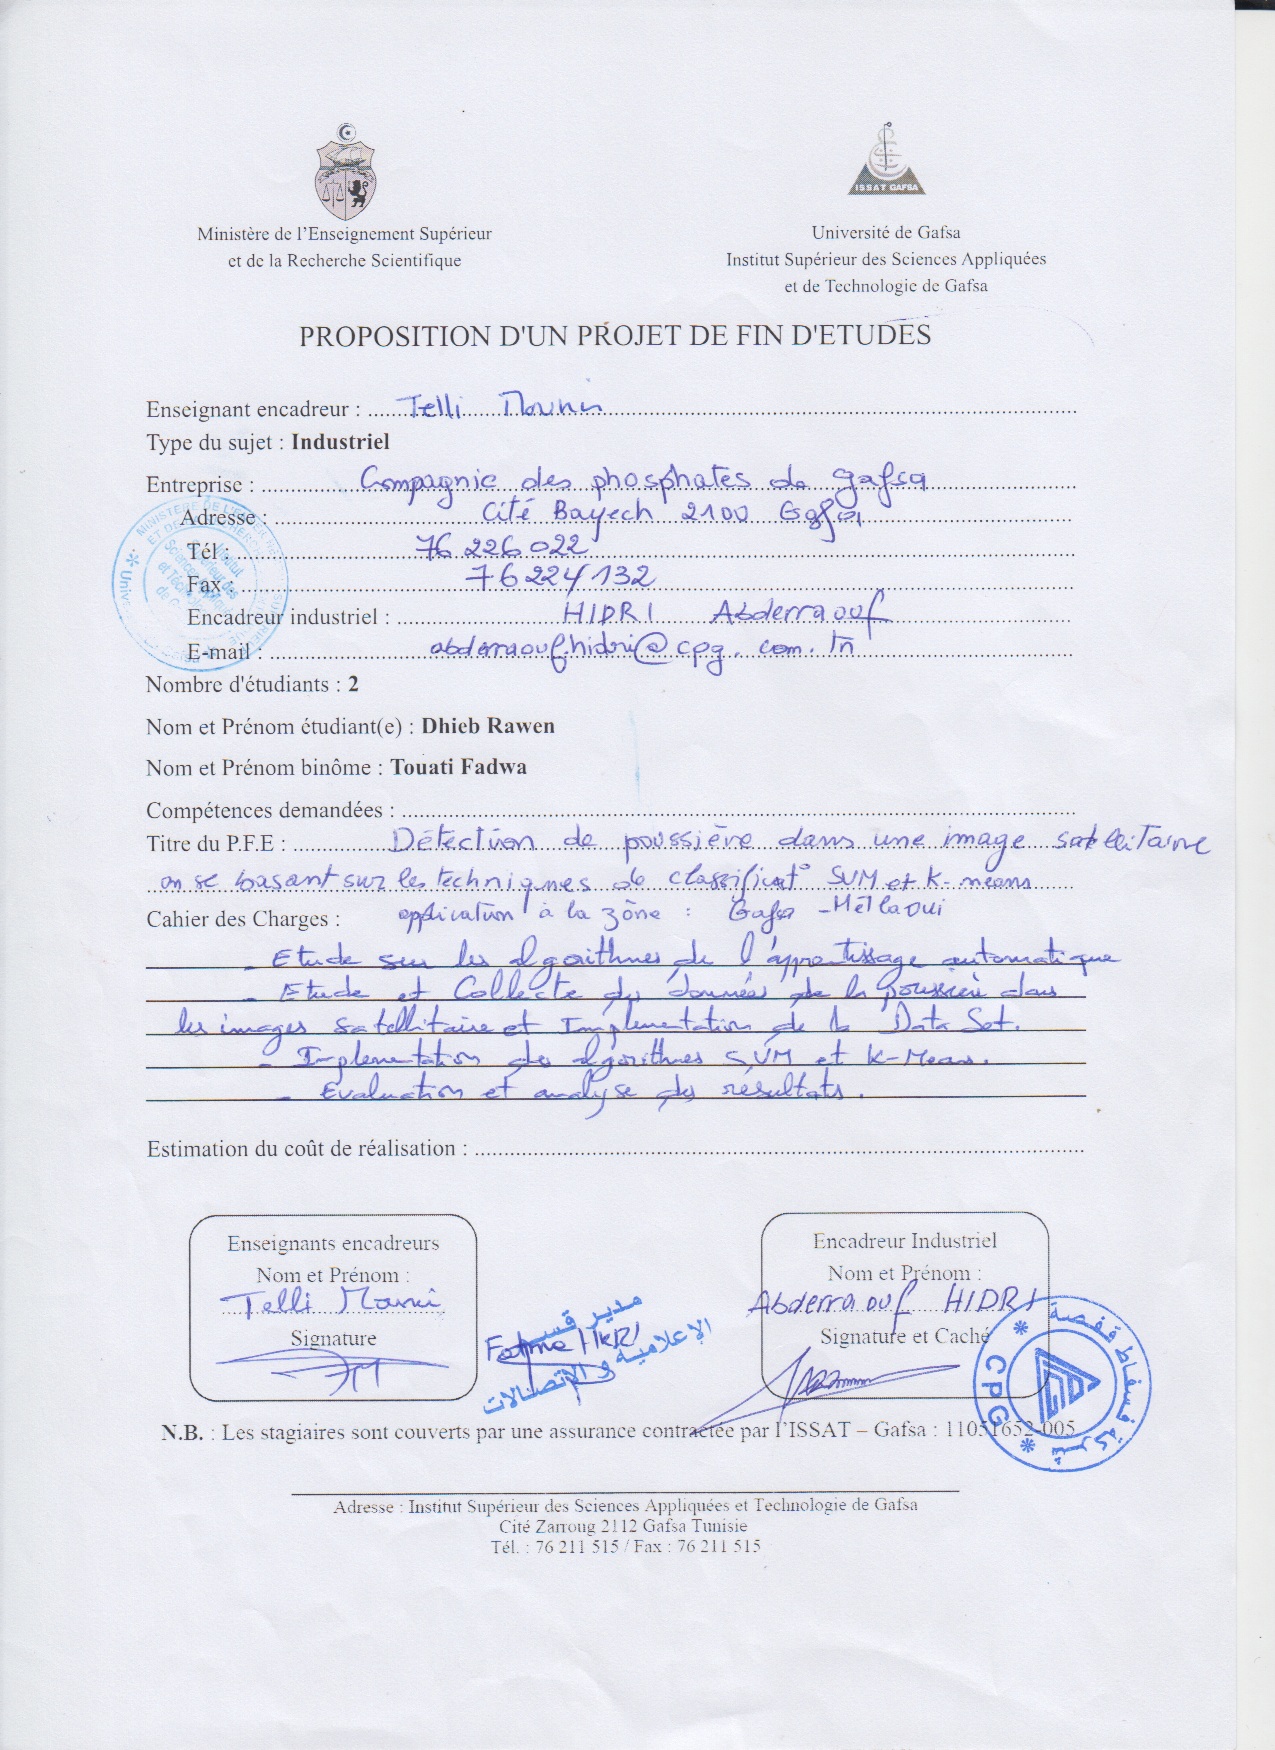 ISSAT GAFSA
Ministère de l'Enseignement Supérieur
et de la Recherche Scientifique
Université de Gafsa
Institut Supérieur des Sciences Appliquées
et de Technologie de Gafsa
PROPOSITION D'UN PROJET DE FIN D'ETUDES
Enseignant encadreur : Telli Mounir
Type du sujet : Industriel
Entreprise : Compagnie des phosphates de Gafsa
Adresse : Cité Bayech 2100 Gafsa
Tél : 76 226 022
Fax : 76 224 132
Encadreur industriel : HIDRI Abderraouf
E-mail : abderraouf.hidri@cpg.com.tn
Nombre d'étudiants : 2
Nom et Prénom étudiant(e) : Dhieb Rawen
Nom et Prénom binôme : Touati Fadwa
Compétences demandées :
Titre du P.F.E : Détection de poussière dans une image satellitaire
en se basant sur les techniques de classificat° SVM et K-means
Cahier des Charges : application à la zône : Gafsa - Métlaoui
- Etude sur les algorithmes de l'apprentissage automatique
- Etude et Collecte des données de la poussière dans
les images satellitaire et Implementation de la Data Set.
- Implementation des algorithmes SVM et K-Means.
- Evaluation et analyse des résultats.
Estimation du coût de réalisation :
Enseignants encadreurs
Nom et Prénom :
Telli Mounir
Signature
مدير قسم
الإعلامية و الإتصالات
Encadreur Industriel
Nom et Prénom :
Abderraouf HIDRI
Signature et Caché
شركة فسفاط قفصة
CPG
N.B. : Les stagiaires sont couverts par une assurance contractée par l'ISSAT – Gafsa : 11051652-005
Adresse : Institut Supérieur des Sciences Appliquées et Technologie de Gafsa
Cité Zarroug 2112 Gafsa Tunisie
Tél. : 76 211 515 / Fax : 76 211 515